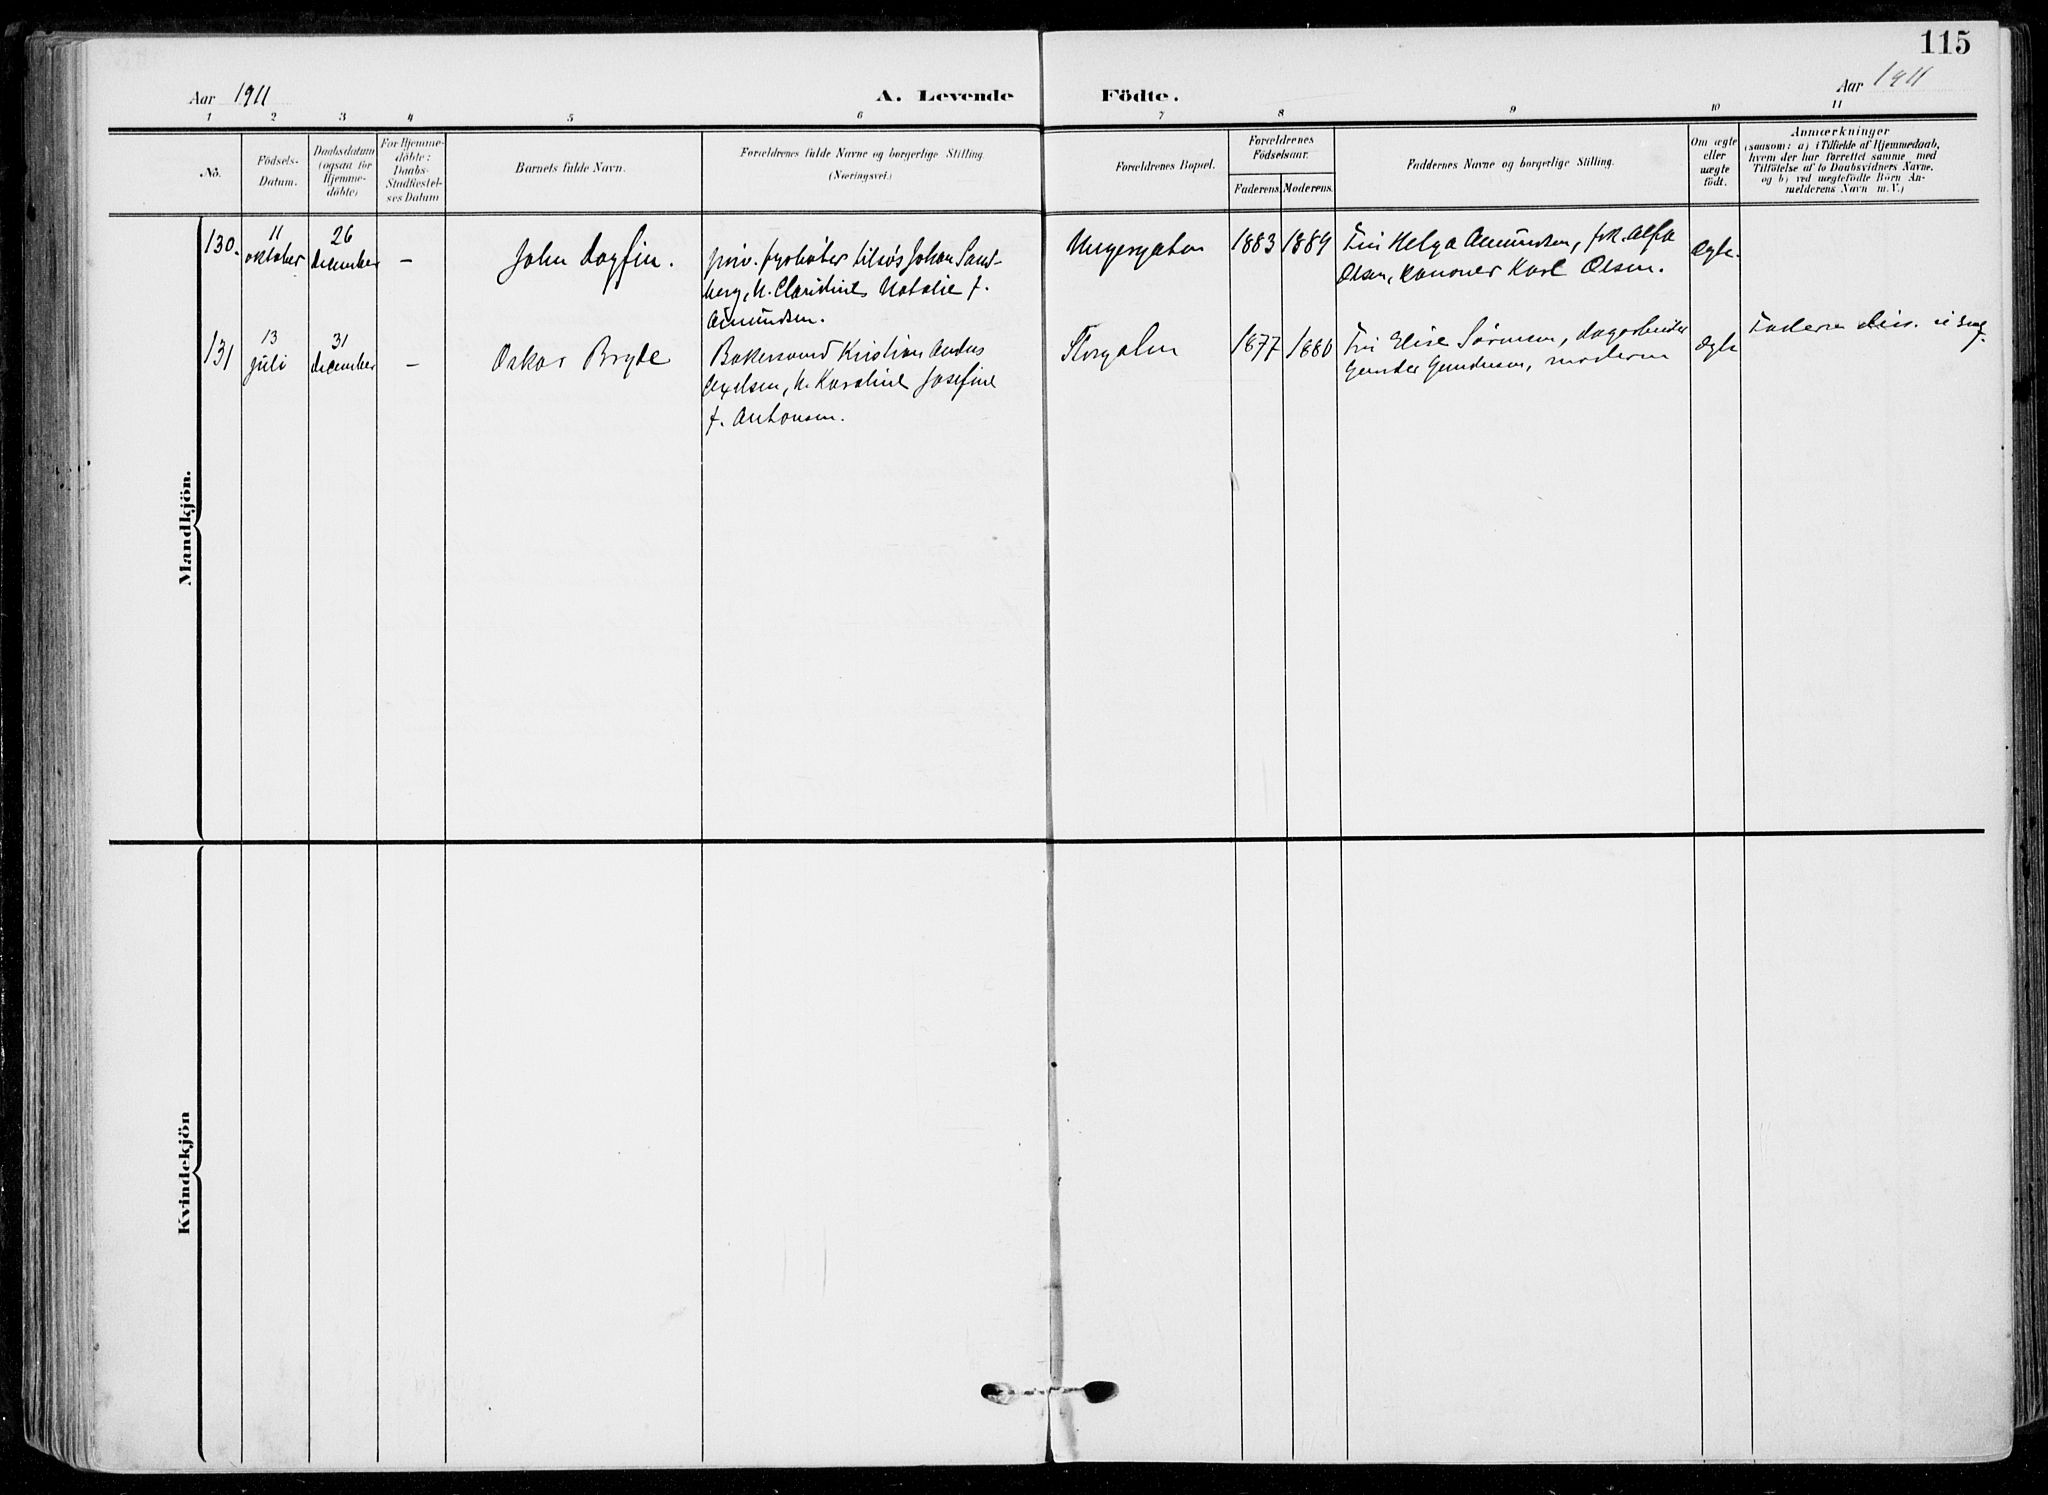 115
Aar 1911
A. Levende Födte.
Aar 1911
1 2 3 4 5 6 7 8 9 10 11
No.
Födsels-
Datum.
Daabsdatum
(ogsaa for
Hjemme-
döbte)
For Hjemme-
döbte:
Daabs-
Stadfæstel-
ses Datum
Barnets fulde Navn.
Forældrenes fulde Navne og borgerlige Stilling
(Næringsvei.)
Forældrenes Bopæl.
Forældrenes
Födselsaar.
Faderens Moderens.
Faddernes Navne og borgerlige Stilling.
Om ægte
eller
uægte
födt.
Anmærkninger
(saasom: a) i Tilfælde af Hjemmedaab,
hvem der har forrettet samme med
Tilföielse af to Daabsvidners Navne,
og b) ved uægtefödte Börn An-
melderens Navn m. V.)
Mandkjön.
130.
11
oktober
26
december
—
John Dagfin.
priv. fyrbøter Johan Sand-
berg, h. Natalie f.
Amundsen.
1883 1889
Fru Helga Amundsen, frk. Alfa
Olsen, kanoner Karl Olsen.
ægte.
131
13
juli
31
december
—
Oskar Bryde
Bakersvend Kristian
Axelsen, h. Karoline Josefine
f. Antonsen.
Storgaten
1877 1880
Fru Elise Sørensen, dagarbeider
Gundersen, moderen
ægte
Faderen diss.
Kvindekjön